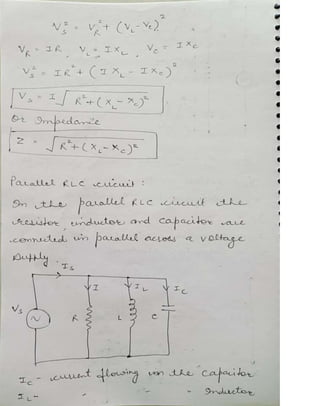 V_S² = V_R² + (V_L - V_C)²
V_R = IR , V_L = IX_L , V_C = IX_C
V_S² = IR² + (IX_L - IX_C)²
V_S = I√R² + (X_L - X_C)²
Or Impedance
Z = √R² + (X_L - X_C)²
Parallel RLC circuit :
In the parallel RLC circuit the
resistor, inductor and capacitor are
connected in parallel across a voltage
supply.
I_S
I I_L I_C
V_S ~ R L C
I_C - current flowing in the capacitor
I_L - - - Inductor